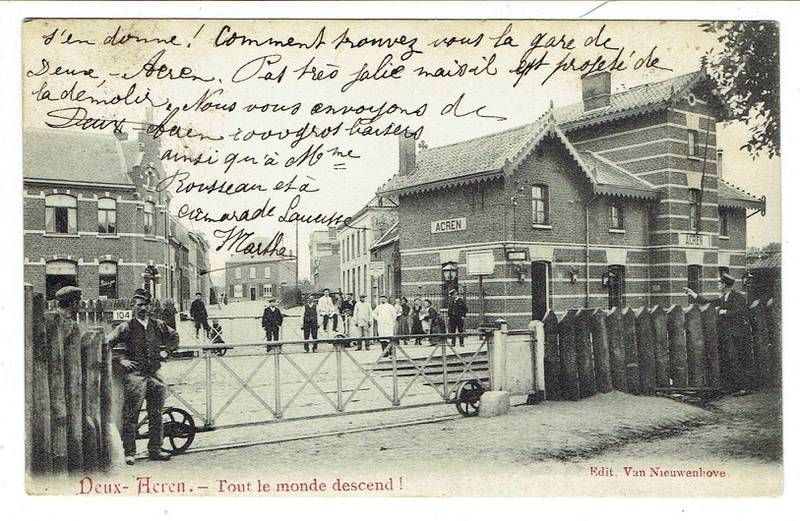 s'en donne! Comment trouvez vous la gare de
Deux-Acren. Pas très jolie mais il est projeté de
la démolir. Nous vous envoyons de
Deux Acren 1000 gros baisers
ainsi qu'à Mme
Rousseau et à
camarade
Marthe
ACREN
ACREN
104
Deux-Acren. - Tout le monde descend!
Edit. Van Nieuwenhove.